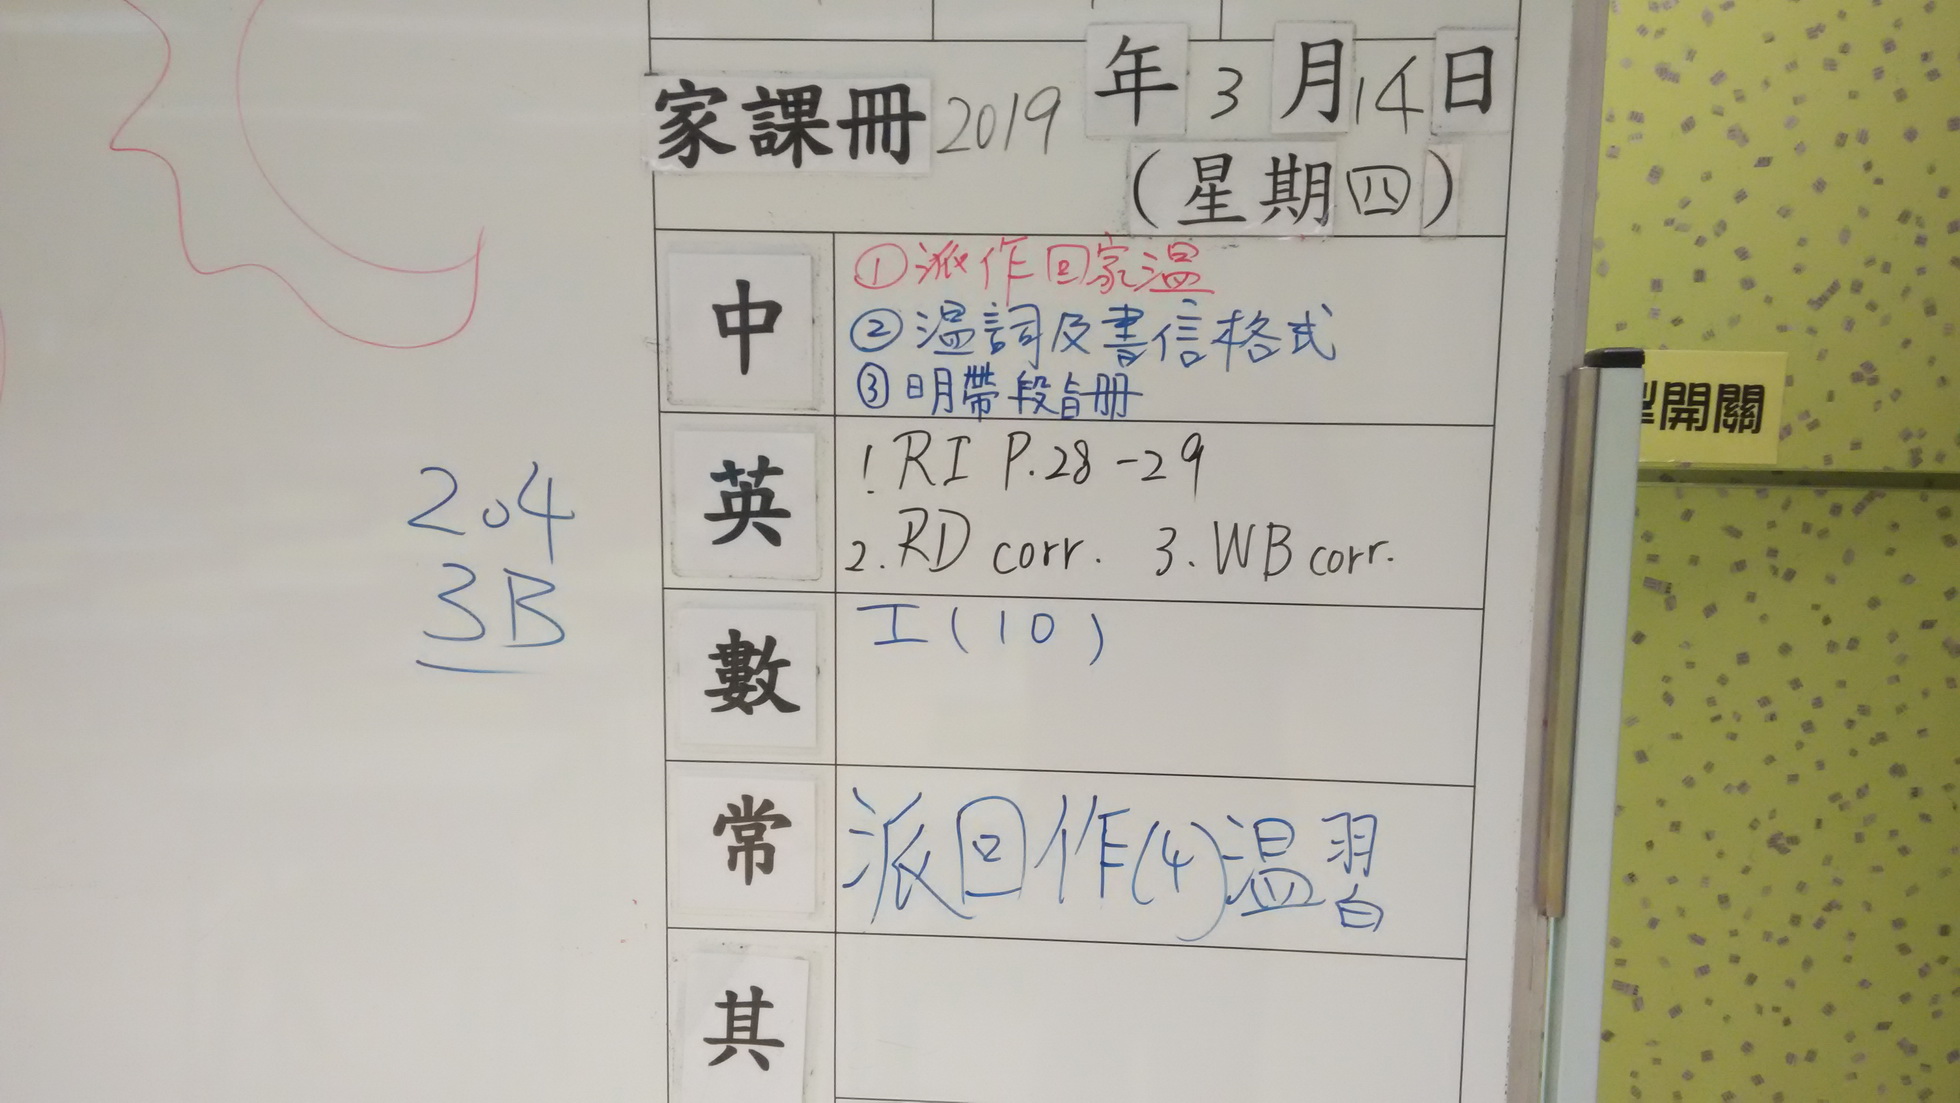 家課冊2019年3月14日
(星期四)
中
①派作回家温
②温詞及書信格式
③明帶段旨冊
英
1. RI P.28-29
2. RD corr. 3. WB corr.
數
工(10)
常
派回作(4)温習
其
204
3B
開關